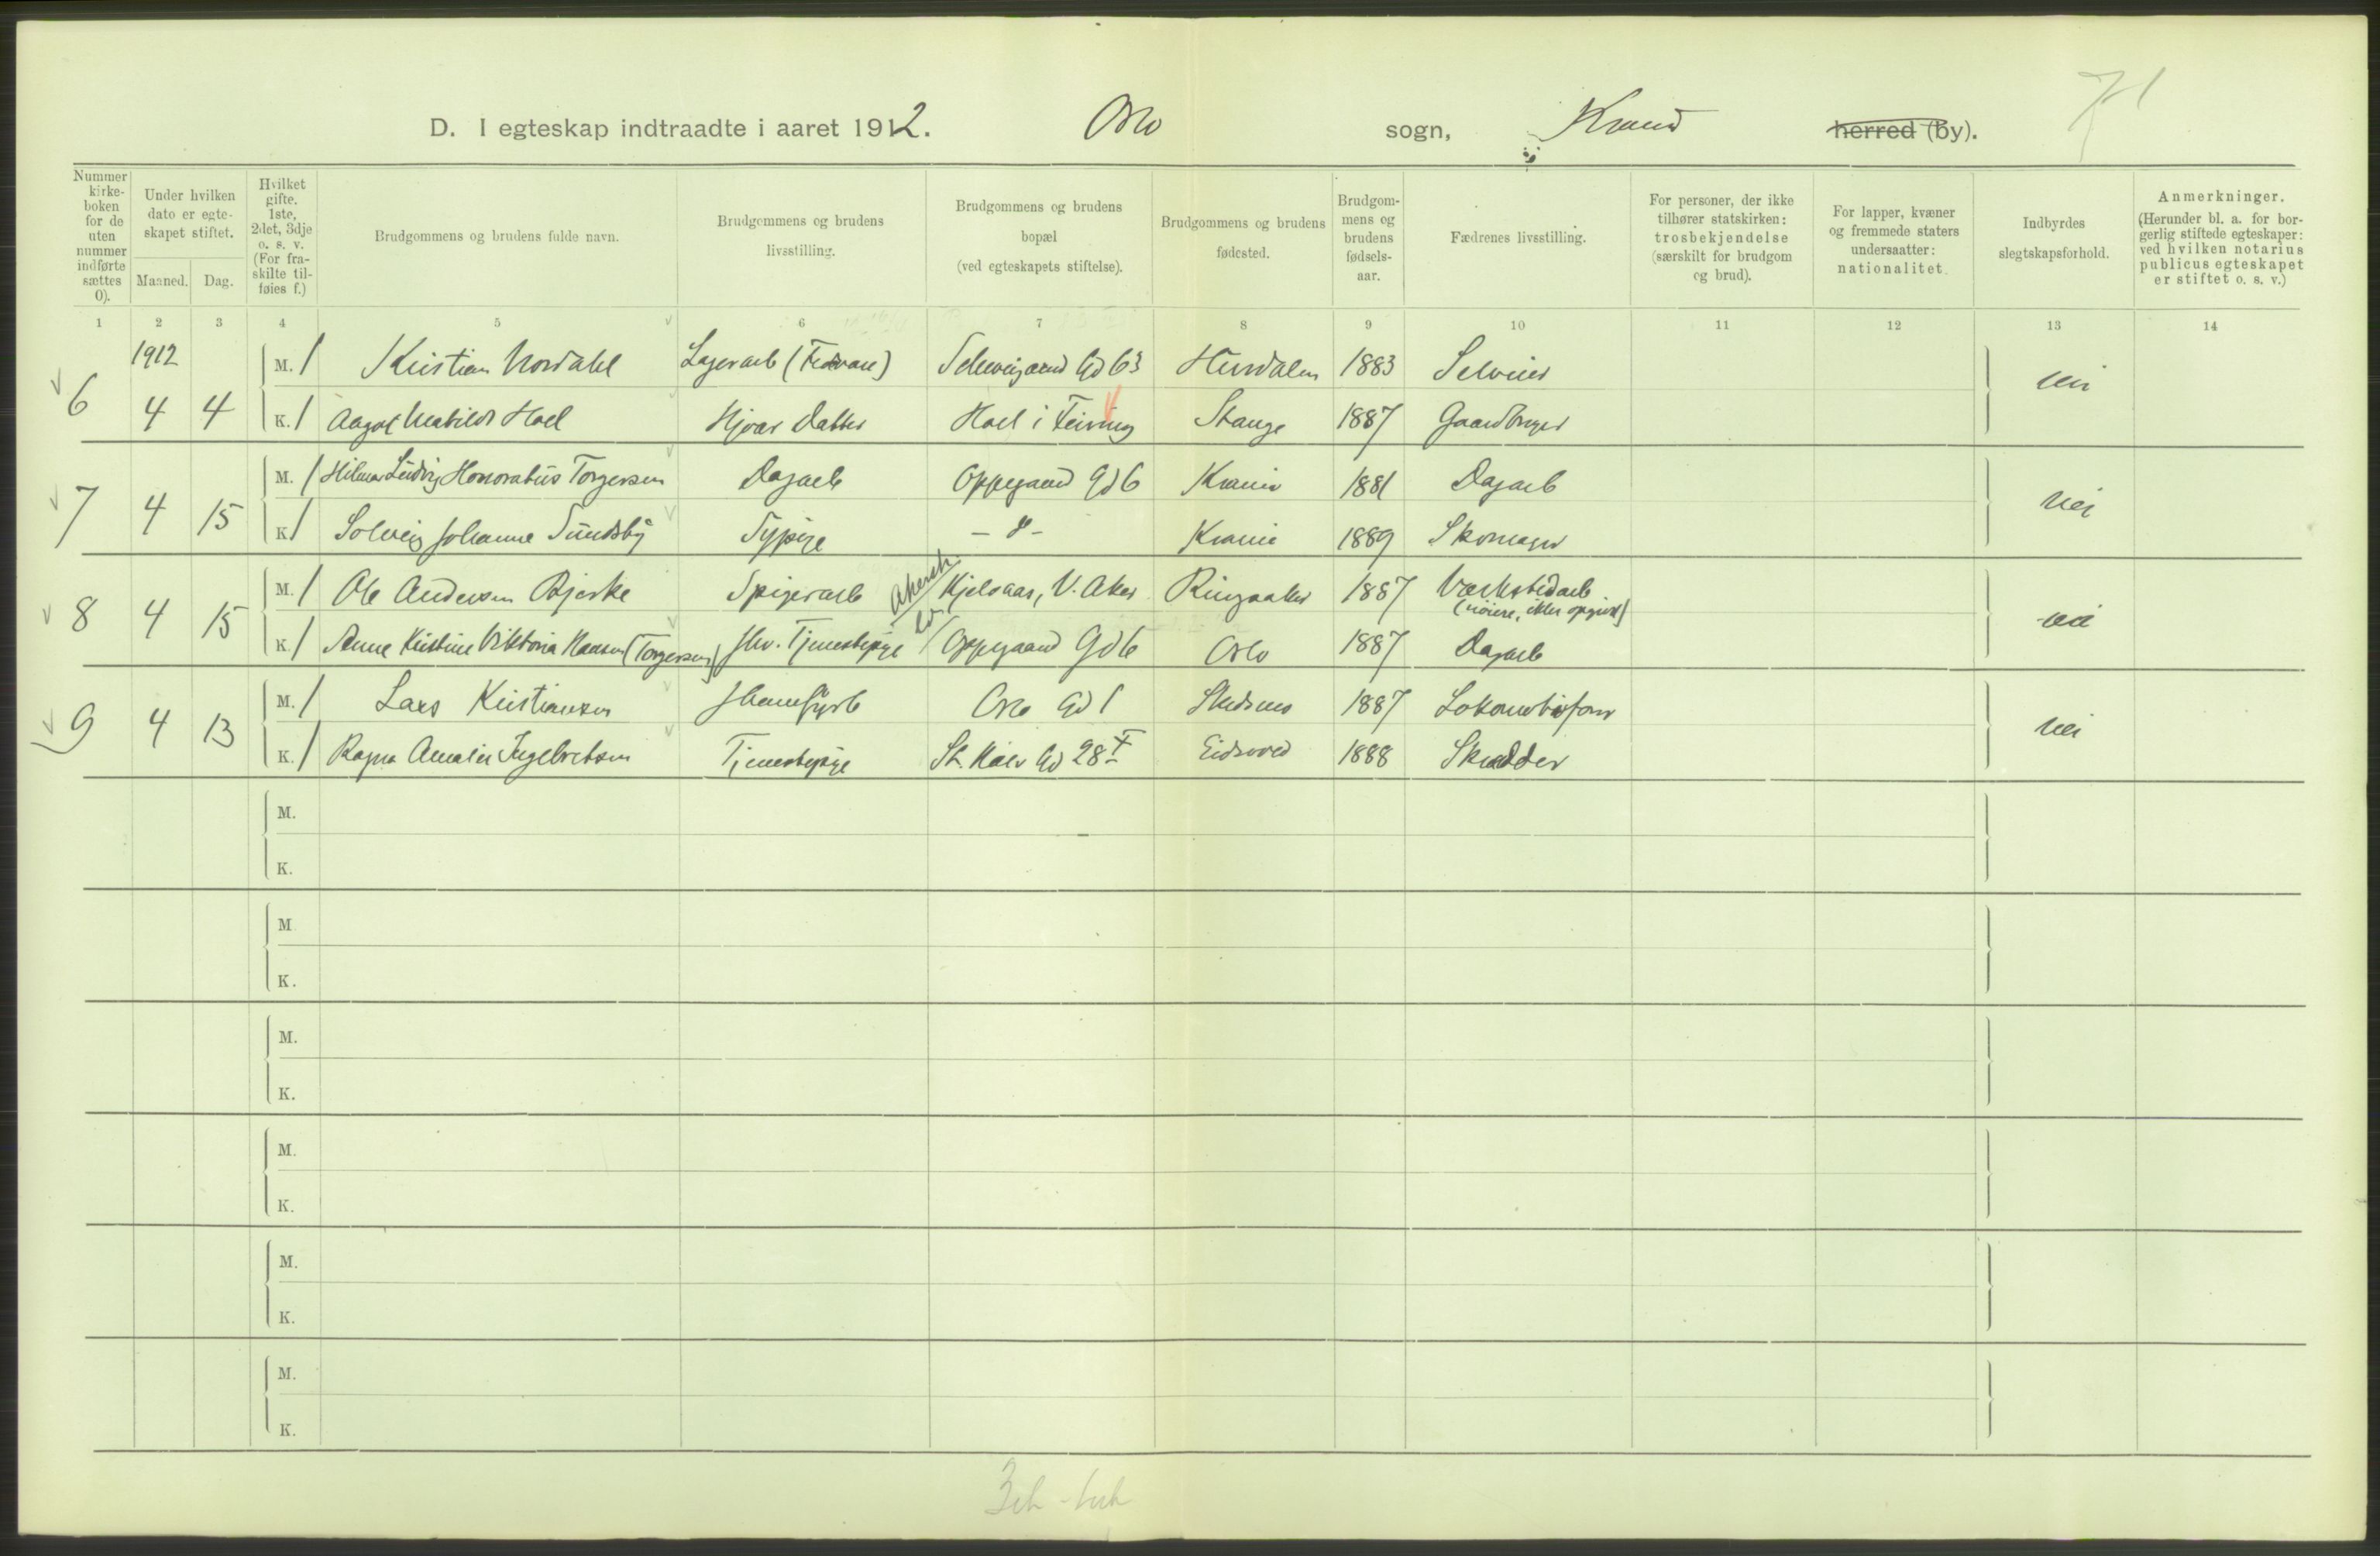 D. I egteskap indtraadte i aaret 1912. Oslo sogn, herred (by). 71
Nummer kirkeboken for de uten nummer indførte sættes 0).
Under hvilken dato er egteskapet stiftet.
Maaned. Dag.
Hvilket gifte. 1ste, 2det, 3dje o. s. v. (For fraskilte tilføies f.)
Brudgommens og brudens fulde navn.
Brudgommens og brudens livsstilling.
Brudgommens og brudens bopæl (ved egteskapets stiftelse).
Brudgommens og brudens fødested.
Brudgommens og brudens fødselsaar.
Fædrenes livsstilling.
For personer, der ikke tilhører statskirken: trosbekjendelse (særskilt for brudgom og brud).
For lapper, kvæner og fremmede staters undersaatter: nationalitet.
Indbyrdes slegtskapsforhold.
Anmerkninger. (Herunder bl. a. for borgerlig stiftede egteskaper: ved hvilken notarius publicus egteskapet er stiftet o. s. v.)
1 2 3 4 5 6 7 8 9 10 11 12 13 14
1912 M. 1 Kristian Nordahl Lagerarb Schweigaard Gd 63 Hurdalen 1883 Selveier nei
6 4 4 K. 1 Aagot Mathilde Hoel Hjem. Datter Hoel i Feiring Stange 1887 Gaardbruger
M. 1 Hilmar Ludvig Honoratus Torgersen Dagarb Oppegaard Gd 6 Krania 1881 Dagarb nei
7 4 15 K 1 Solveig Johanne Sundby Sypige - " - Krania 1889 Skomager
M. 1 Ole Andersen Bjerke Spigerarb Akersh. Kjelsaas, V. Aker Ringsaker 1887 Værkstedarb (nöiere, ikke opgivet) nei
8 4 15 K. 1 Anne Kristine Viktoria Hansen (Torgersen) Tjenestepige Oppegaard Gd 6 Oslo 1887 Dagarb
M. 1 Lars Kristiansen Oslo Gd 1 Skedsmo 1887 nei
9 4 13 K. 1 Ragna Amalie Ingebretsen Tjenestepige St. Halv Gd 28 Eidsvold 1888 Skrædder
M.
K.
M
K.
M.
K.
M.
K.
M.
K.
M.
K.